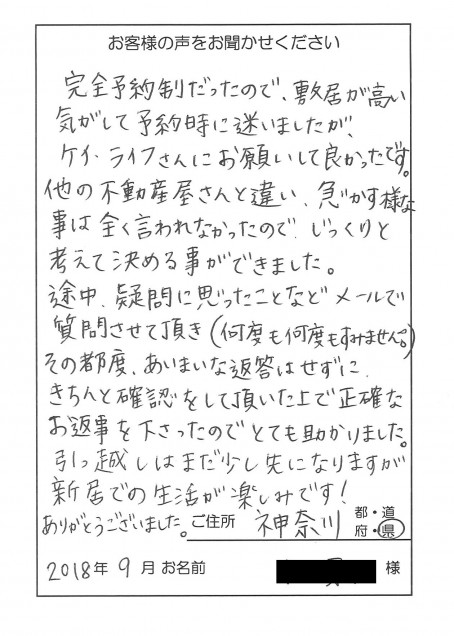 お客様の声をお聞かせください
完全予約制だったので、敷居が高い
気がして予約時に迷いましたが、
ケイ・ライフさんにお願いして良かったです。
他の不動産屋さんと違い、急かす様な
事は全く言われなかったので、じっくりと
考えて決める事ができました。
途中、疑問に思ったことなどメールで
質問させて頂き(何度も何度もすみません。)
その都度、あいまいな返答はせずに、
きちんと確認をして頂いた上で正確な
お返事を下さったのでとても助かりました。
引っ越しはまだ少し先になりますが
新居での生活が楽しみです!
ありがとうございました。
ご住所 神奈川 都・道・府・県
2018年 9月 お名前 様